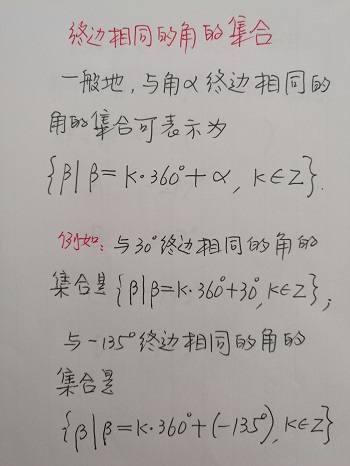 终边相同的角的集合
一般地，与角α终边相同的
角的集合可表示为
{β|β=K·360°+α，K∈Z}.
例如：与30°终边相同的角的
集合是{β|β=K·360°+30°，K∈Z}；
与-135°终边相同的角的
集合是
{β|β=K·360°+(-135°)，K∈Z}